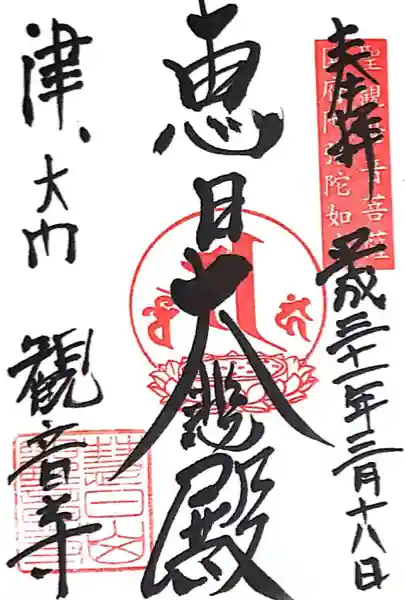 奉拝
平成三十一年三月十八日
聖観世音菩薩
国府阿弥陀如来
恵日大悲殿
津、大門
観音寺